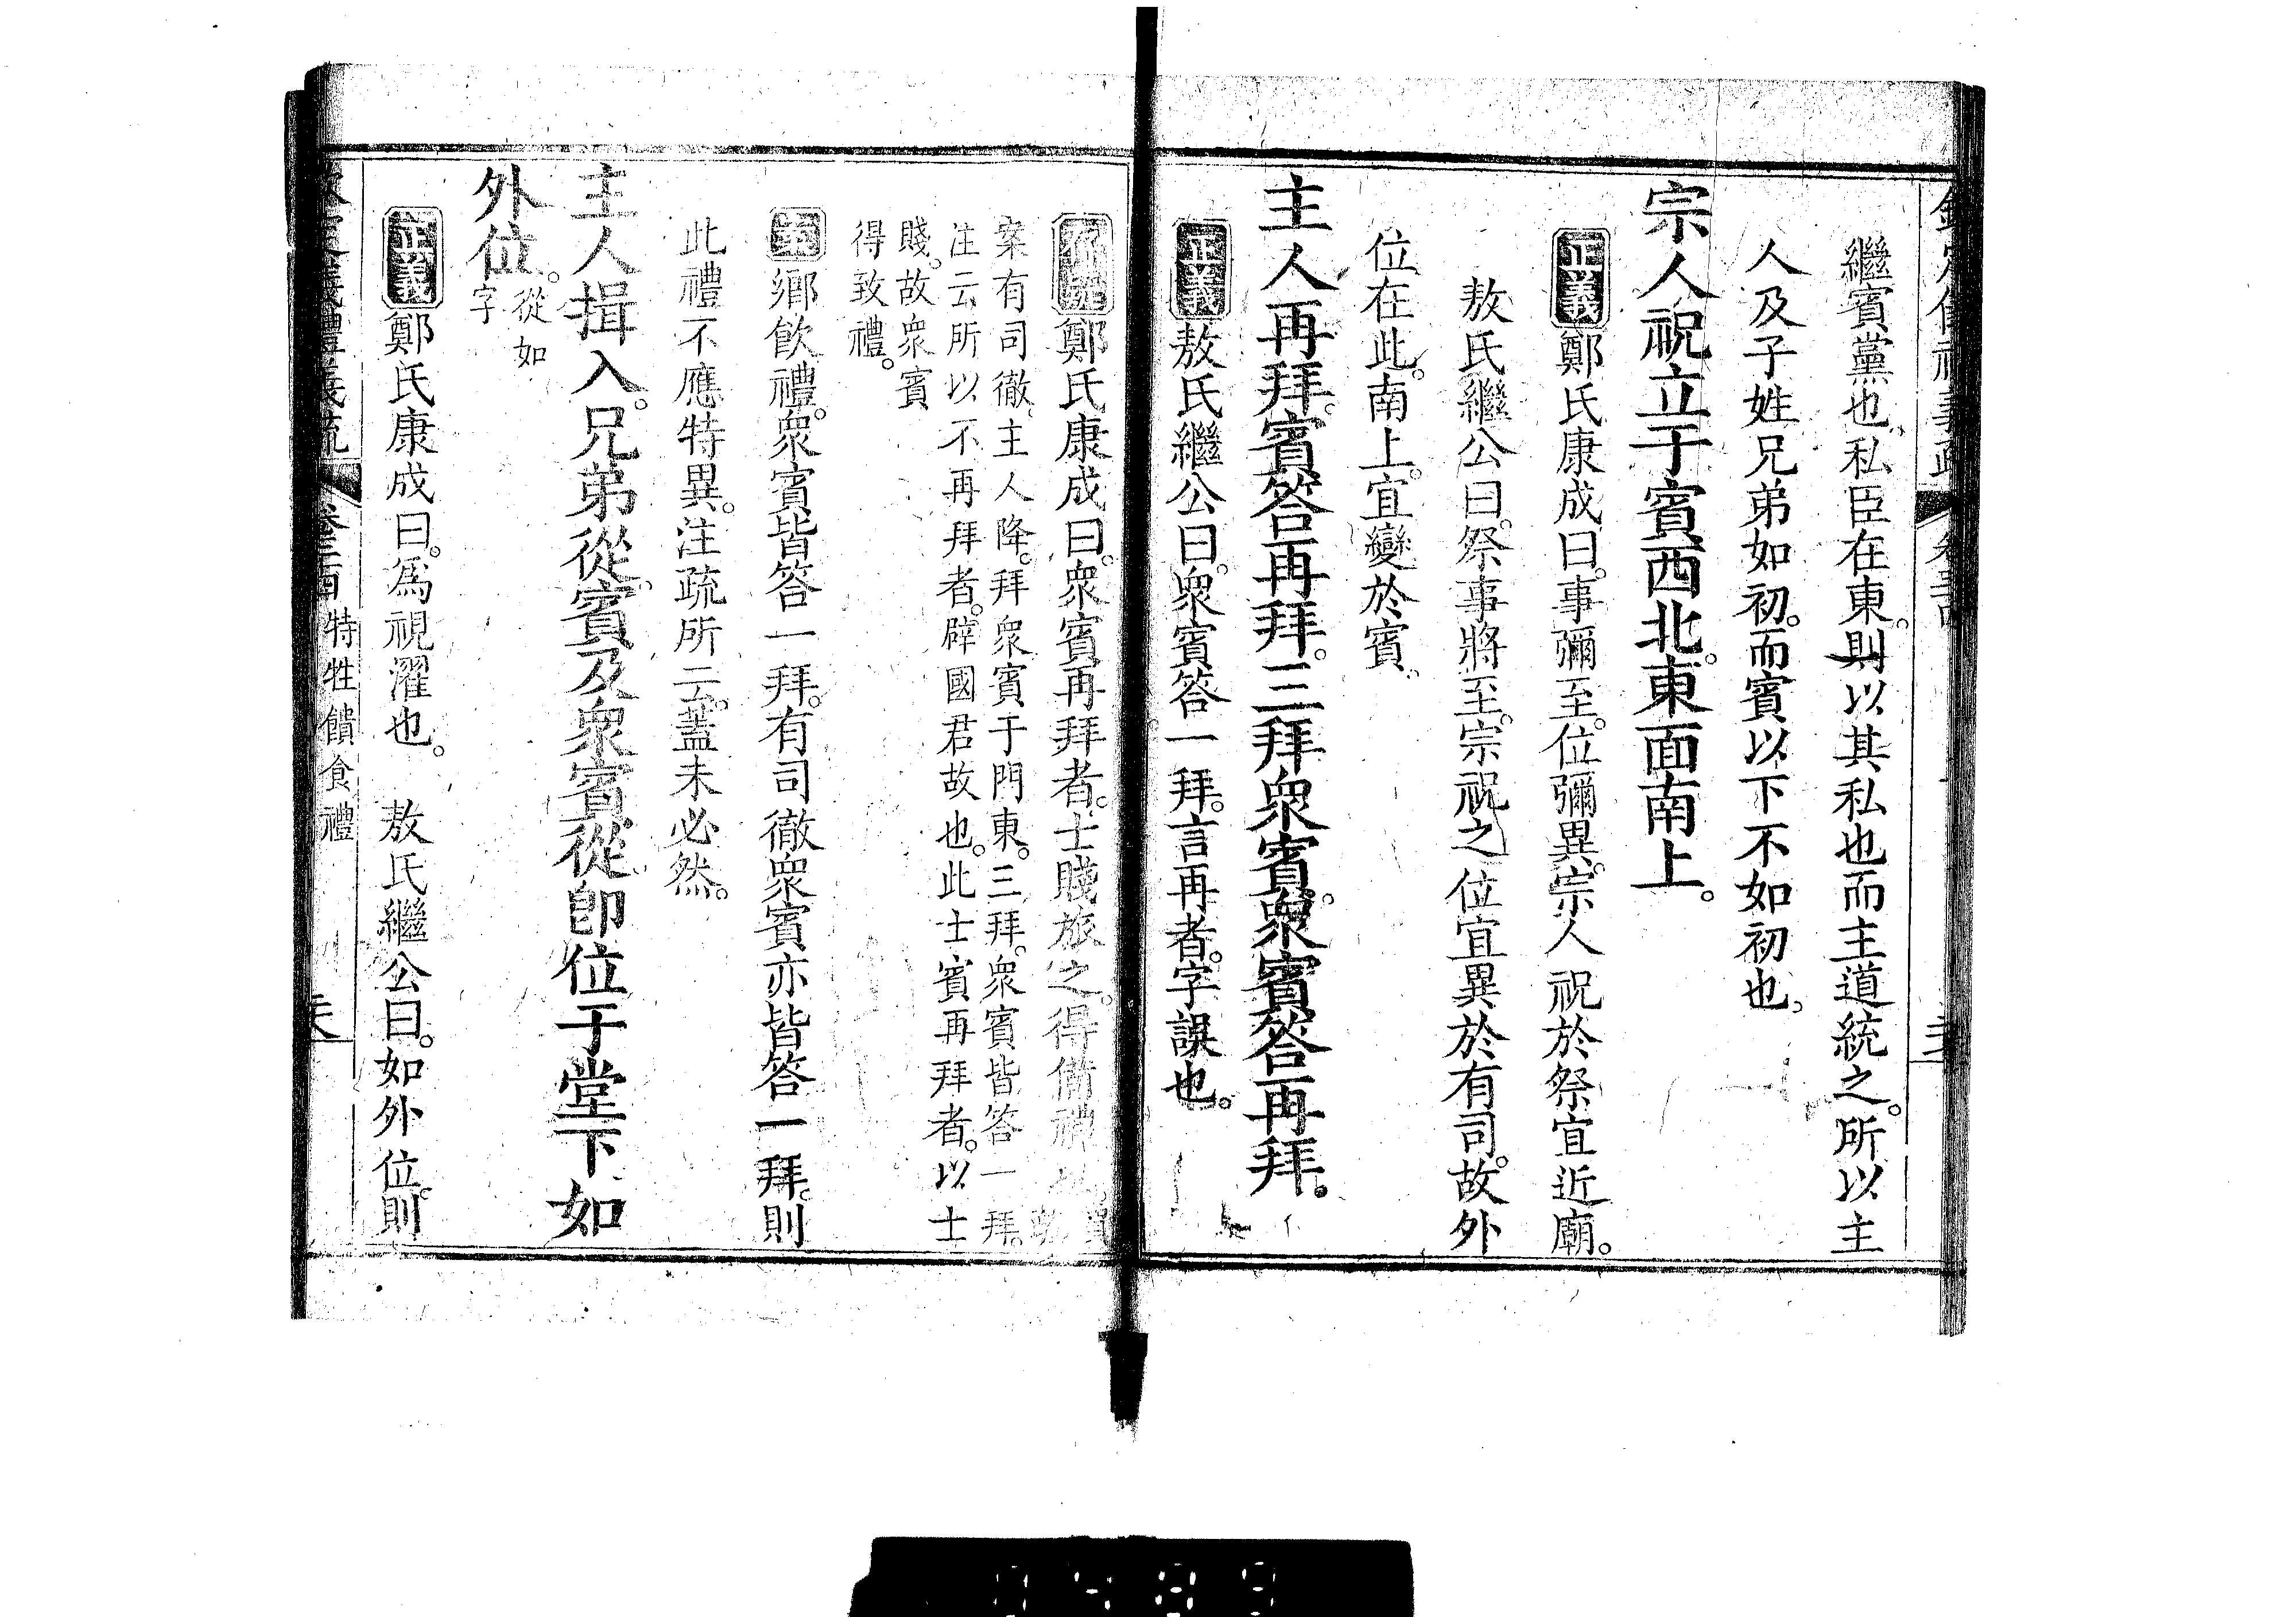 繼賓黨也私臣在東則以其私也而主道統之所以主
人及子姓兄弟如初而賓以下不如初也
宗人祝立于賓西北東面南上
正義鄭氏康成曰事彌至位彌異宗人祝於祭宜近廟
敖氏繼公曰祭事將至宗祝之位宜異於有司故外
位在此南上宜變於賓
主人再拜賓答再拜三拜眾賓眾賓答再拜
正義敖氏繼公曰眾賓答一拜言再者字誤也
鄭氏康成曰眾賓再拜者士賤旅之得備禮
案有司徹主人降拜眾賓于門東三拜眾賓皆答一拜
注云所以不再拜者辟國君故也此士賓再拜者以士
賤故眾賓
得致禮
案鄉飲禮眾賓皆答一拜有司徹眾賓亦皆答一拜則
此禮不應特異注疏所云蓋未必然
主人揖入兄弟從賓及眾賓從即位于堂下如
外位從如
字
正義鄭氏康成曰為視濯也 敖氏繼公曰如外位則
欽定儀禮義疏 特牲饋食禮